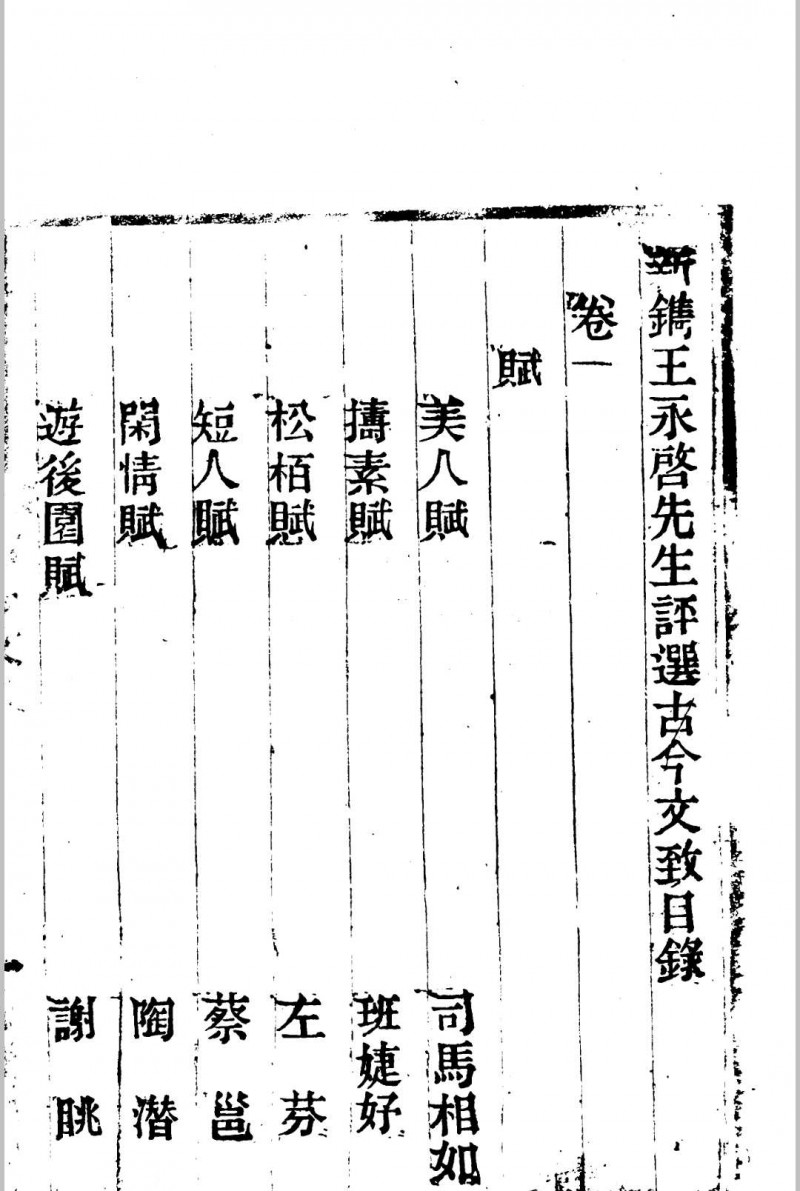 新鐫王永啓先生評選古今文致目錄
卷一
賦
美人賦 司馬相如
擣素賦 班婕妤
松栢賦 左芬
短人賦 蔡邕
閑情賦 陶潛
遊後園賦 謝朓